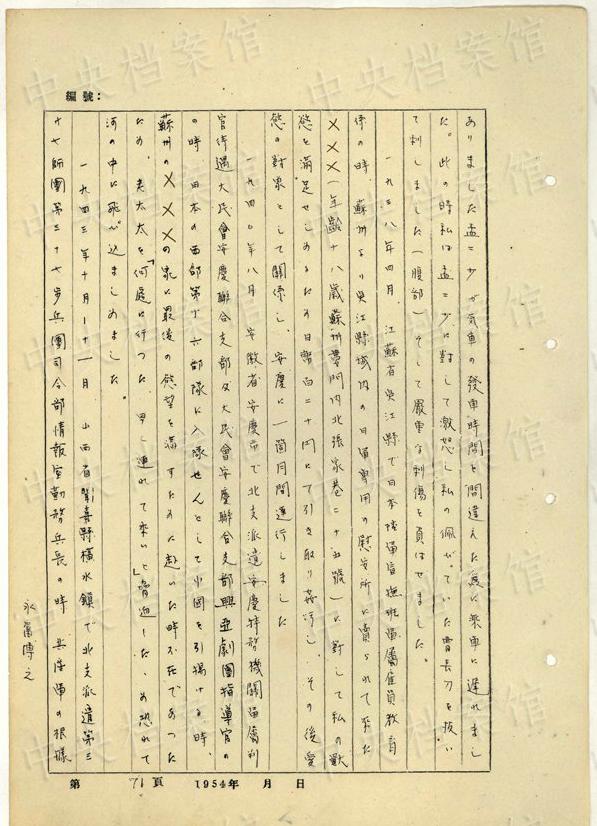 編號:
ありました孟二少が汽車の發車時間を間違えた為に乘車に遅れまし
た。此の時私は孟二少に対して激怒し私の佩びていた曹長刀を抜い
て刺しました(腹部)そして嚴重な刺傷を負はせました。
一九三八年四月、江蘇省吳江縣で日本陸軍宣撫班軍屬雇員教育
係の時、蘇州より吳江縣城内の日軍專用の慰安所に賣られて来た
×××(年齢十八歳蘇州婁門内北張家巷二十五號)に對して私の獣
慾を満足せしめるため日幣百二十円にて引き取り姦淫し、その後愛
慾の對象として關係し、安慶に一箇月間連行しました
一九四〇年八月 安徽省安慶市で北支派遣安慶特務機關軍屬判
官待遇大民會安慶聯合支部及大民會安慶聯合支部興亞劇團指導官の
の時 日本の西部第十六部隊に入隊せんとして中國を引揚げる時、
蘇州の×××の家に最後の慾望を満すために赴いた時不在であった
ため、老太太を「何處に行った 早く連れて来い」と脅迫したゝめ恐れて
河の中に飛び込ましめました。
一九四三年十月ー十一月 山西省聞喜縣橫水鎮で北支派遣第三
十七師團第三十七步兵團司令部情報室勤務兵長の時 軍の根據
永富博之
第 71頁 1954年 月 日
中央档案馆